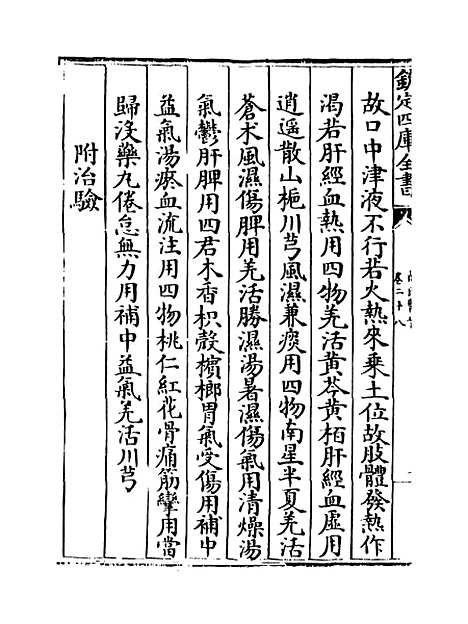 欽定四庫全書
卷二十八
故口中津液不行若火熱來乘土位故肢體發熱作
渴若肝經血熱用四物羌活黃芩黃栢肝經血虚用
逍遥散山梔川芎風濕兼痰用四物南星半夏羌活
蒼术風濕傷脾用羌活勝濕湯暑濕傷氣用清燥湯
氣鬱肝脾用四君木香枳殼檳榔胃氣受傷用補中
益氣湯瘀血流注用四物桃仁紅花骨痛筋攣用當
歸没藥丸倦怠無力用補中益氣羌活川芎
附治驗